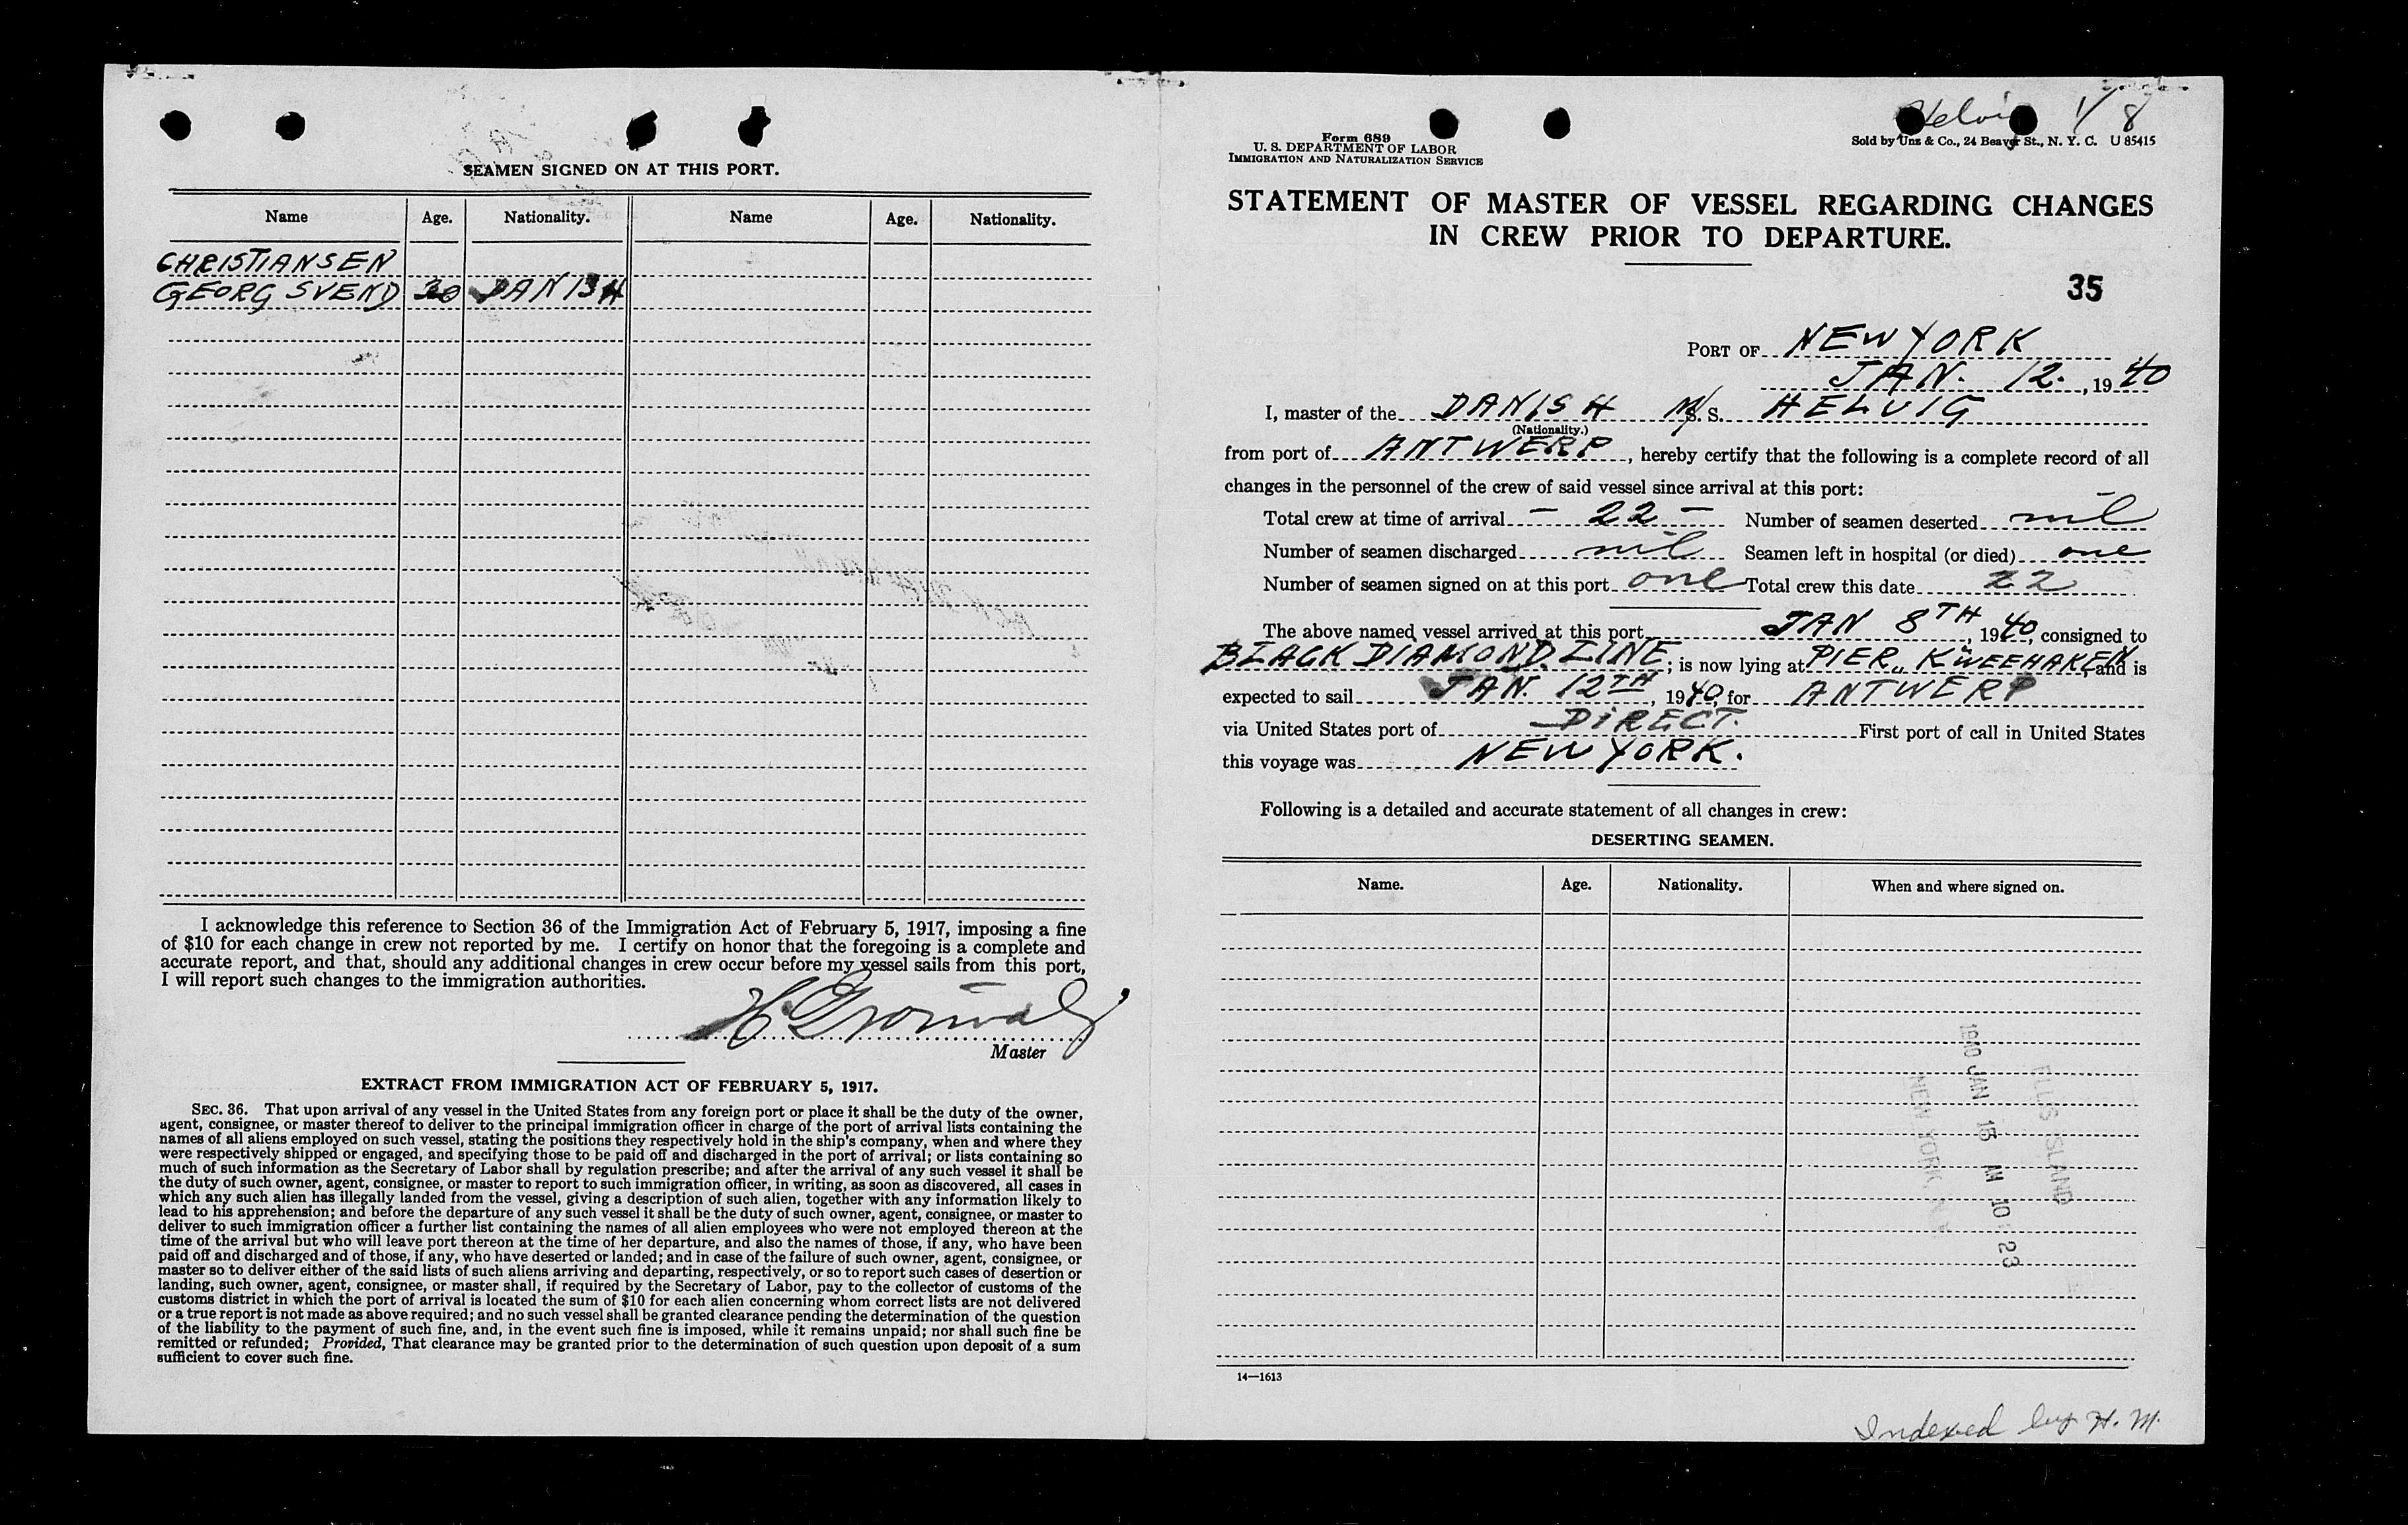 SEAMEN SIGNED ON AT THIS PORT.
Name Age. Nationality. Name Age. Nationality.
CHRISTIANSEN
GEORG SVEND 30 DANISH
I acknowledge this reference to Section 36 of the Immigration Act of February 5, 1917, imposing a fine
of $10 for each change in crew not reported by me. I certify on honor that the foregoing is a complete and
accurate report, and that, should any additional changes in crew occur before my vessel sails from this port,
I will report such changes to the immigration authorities.
Master
EXTRACT FROM IMMIGRATION ACT OF FEBRUARY 5, 1917.
SEC. 36. That upon arrival of any vessel in the United States from any foreign port or place it shall be the duty of the owner,
agent, consignee, or master thereof to deliver to the principal immigration officer in charge of the port of arrival lists containing the
names of all aliens employed on such vessel, stating the positions they respectively hold in the ship's company, when and where they
were respectively shipped or engaged, and specifying those to be paid off and discharged in the port of arrival; or lists containing so
much of such information as the Secretary of Labor shall by regulation prescribe; and after the arrival of any such vessel it shall be
the duty of such owner, agent, consignee, or master to report to such immigration officer, in writing, as soon as discovered, all cases in
which any such alien has illegally landed from the vessel, giving a description of such alien, together with any information likely to
lead to his apprehension; and before the departure of any such vessel it shall be the duty of such owner, agent, consignee, or master to
deliver to such immigration officer a further list containing the names of all alien employees who were not employed thereon at the
time of the arrival but who will leave port thereon at the time of her departure, and also the names of those, if any, who have been
paid off and discharged and of those, if any, who have deserted or landed; and in case of the failure of such owner, agent, consignee, or
master so to deliver either of the said lists of such aliens arriving and departing, respectively, or so to report such cases of desertion or
landing, such owner, agent, consignee, or master shall, if required by the Secretary of Labor, pay to the collector of customs of the
customs district in which the port of arrival is located the sum of $10 for each alien concerning whom correct lists are not delivered
or a true report is not made as above required; and no such vessel shall be granted clearance pending the determination of the question
of the liability to the payment of such fine, and, in the event such fine is imposed, while it remains unpaid; nor shall such fine be
remitted or refunded; Provided, That clearance may be granted prior to the determination of such question upon deposit of a sum
sufficient to cover such fine.
Helvig 1/8
Form 689
U. S. DEPARTMENT OF LABOR
IMMIGRATION AND NATURALIZATION SERVICE
Sold by Unz & Co., 24 Beaver St., N. Y. C. U 85415
STATEMENT OF MASTER OF VESSEL REGARDING CHANGES
IN CREW PRIOR TO DEPARTURE.
35
PORT OF NEW YORK
JAN. 12., 1940
I, master of the DANISH M/S. S. HELVIG
(Nationality.)
from port of ANTWERP, hereby certify that the following is a complete record of all
changes in the personnel of the crew of said vessel since arrival at this port:
Total crew at time of arrival - 22 - Number of seamen deserted nil
Number of seamen discharged nil Seamen left in hospital (or died) one
Number of seamen signed on at this port one Total crew this date 22
The above named vessel arrived at this port JAN 8TH, 1940, consigned to
BLACK DIAMOND LINE; is now lying at PIER "K" WEEHAKEN, and is
expected to sail JAN. 12TH, 1940, for ANTWERP
via United States port of DIRECT. First port of call in United States
this voyage was NEW YORK.
Following is a detailed and accurate statement of all changes in crew:
DESERTING SEAMEN.
Name. Age. Nationality. When and where signed on.
ELLIS ISLAND
1940 JAN 15 AM 10 23
NEW YORK, N.Y.
14—1613
Indexed by H. M.